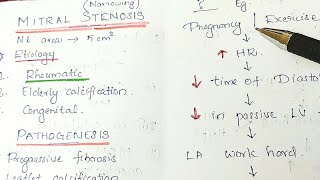 (Narrowing)
MITRAL STENOSIS
Nl area → 5 cm²
Etiology
1. Rheumatic
2. Elderly calcification.
Congenital.
PATHOGENESIS
Progressive fibrosis
Leaflet calcification
? Eg.
Pregnancy | Exercise
↓
↑ HR.
↓
↓ time of Diasto
↓
↓ in passive LV
↓
LA work hard.
↓